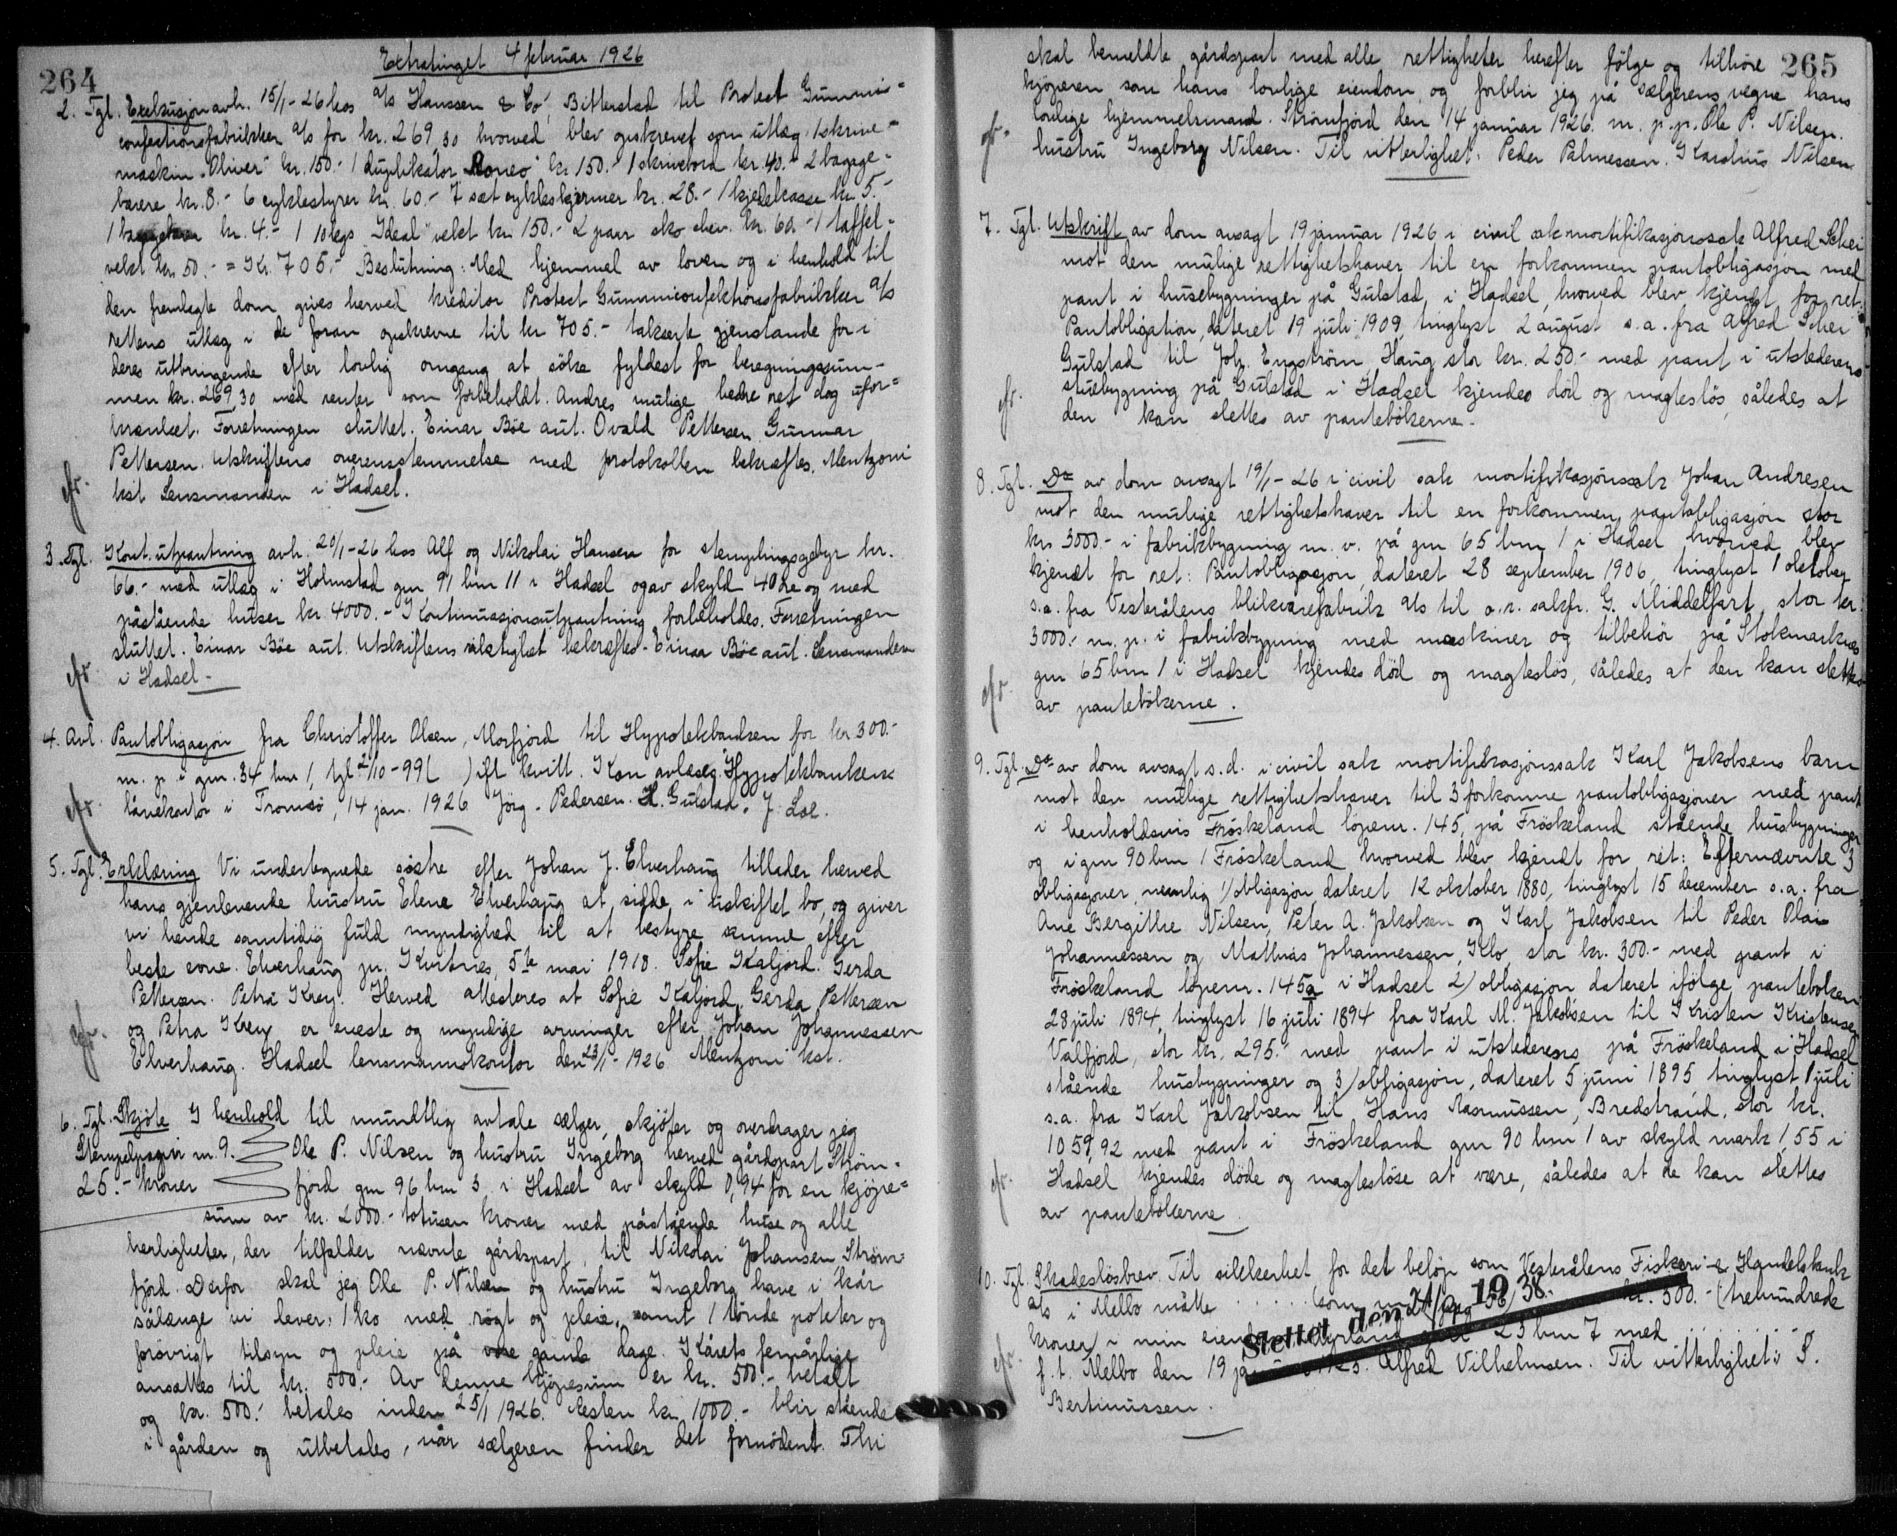 264
Extratinget 4 februar 1926
2. Tgl. Exekusjon avh. 15/1-26 hos A/s Hanssen & Co, Bitterstad til Protest Gummi-
confectionsfabrikker A/s for kr. 269,30 hvorved blev opskrevet som utlæg 1 skrive-
maskin "Oliver" kr. 150.- 1 duplikator Roneo kr. 150.- 1 skrivebord kr. 40.- 2 bagage-
bærere kr. 8.- 6 cyklestyrer kr. 60.- 7 sæt cykleskjermer kr. 28.- 1 kjedekasse kr. 5.-
1 kr. 4.- 1 10 kgs "Ideal" vekt kr. 150.- 2 par sko kr. 60.- 1 taffel-
vekt kr. 50.- = Kr. 705.- Beslutning: Med hjemmel av loven og i henhold til
den fremlagte dom gives herved kreditor Protest Gummiconfektionsfabrikker A/s
rettens utlæg i de foran opskrevne til kr 705.- takserte gjenstande for i
deres utbringende efter lovlig omgang at söke fyldest for beregningssum-
men kr. 269,30 med renter som forbeholdt. Andres mulige bedre ret dog ufor-
krænket. Forretningen sluttet. Einar Böe aut. Ovald Pettersen Gunnar
Pettersen. Utskriftens overensstemmelse med protokollen bekræftes. Mentzoni
kst Lensmanden i Hadsel.
3. Tgl. Kont. utpantning avh. 20/1-26 hos Alf og Nikolai Hansen for stemplingsgebyr kr.
66.- med utlæg i Holmstad gnr 91 bnr 11 i Hadsel og av skyld 40 öre og med
påstående huser kr. 4000.- Kontinuasjonsutpantning forbeholdes. Forretningen
sluttet. Einar Böe aut. Utskriftens riktighet bekræftes. Einar Böe aut. Lensmanden
i Hadsel.-
4. Avl. Pantobligasjon fra Christoffer Olsen, Morfjord til Hypotekbanken for kr 300.-
m. p. i gnr. 34 bnr 1, tgl 2/10-99 ( ) ift kvitt. Kan avlæses. Hypotekbankens
lånekontor i Tromsö, 14 jan. 1926 Jörg. Pedersen. H. Gulstad. J. Loe.
5. Tgl. Erklæring Vi undertegnede söstre efter Johan J. Elverhaug tillader herved
hans gjenlevende hustru Elene Elverhaug at sidde i uskiftet bo, og giver
vi hende samtidig fuld myndighed til at bestyre samme efter
beste evne. Elverhaug pr. Kvitnes, 5te mai 1918. Sofie Kaljord. Gerda
Pettersen. Petra Krey. Herved attesteres at Sofie Kaljord, Gerda Pettersen
og Petra Krey er eneste og myndige arvinger efter Johan Johannessen
Elverhaug. Hadsel lensmannskontor den 23/1-1926 Mentzoni kst.
6. Tgl. Skjöte I henhold til mundtlig avtale sælger, skjöter og overdrager jeg
Stempelpapir nr. 9. Ole P. Nilsen og hustru Ingeborg herved gårdspart Ström-
25.- kroner fjord gnr 96 bnr 3 i Hadsel av skyld 0,94 for en kjöpe-
sum av kr. 2000.- totusen kroner med påstående huse og alle
herligheter, der tilfalder nævnte gårdspart, til Nikolai Johansen Ström-
fjord. Derfor skal jeg Ole P. Nilsen og hustru Ingeborg have i kår
sålænge vi lever: 1 ko med rögt og pleie, samt 1 tönde poteter og
forövrigt tilsyn og pleie på vore gamle dage. Kårets femårlige
ansættes til kr. 500.- Av denne kjöpesum er kr. 500.- betalt
og kr. 500.- betales inden 25/1 1926. Resten kr. 1000.- blir stående
i gården og utbetales, når sælgeren finder det fornödent. Thi
265
skal bemeldte gårdspart med alle rettigheter herefter fölge og tilhöre
kjöperen som hans lovlige eiendom, og forblir jeg på sælgerens vegne hans
lovlige hjemmelsmand. Strömfjord den 14 januar 1926. m. p. p. Ole P. Nilsen.
hustru Ingeborg Nilsen. Til vitterlighet: Peder Palmessen. Karolius Nilsen
7. Tgl. Utskrift av dom avsagt 19 januar 1926 i civil sak mortifikasjonssak Alfred Scher
mot den mulige rettighetshaver til en forkommen pantobligasjon med
pant i husebygninger på Gulstad i Hadsel, hvorved blev kjendt for ret:
Pantobligation, dateret 19 juli 1909, tinglyst 2 august s.a. fra Alfred Scher
Gulstad til Joh. Engström, Haug, stor kr. 250.- med pant i utstederens
stuebygning på Gulstad i Hadsel kjendes död og magteslös, således at
den kan slettes av pantebökerne.
8. Tgl. Do av dom avsagt 19/1-26 i civil sak mortifikasjonssak Johan Andresen
mot den mulige rettighetshaver til en forkommen pantobligasjon stor
kr. 3000.- i fabrikbygning m. v. på gnr 65 bnr 1 i Hadsel hvorved blev
kjendt for ret: Pantobligasjon, dateret 28 september 1906, tinglyst 1 oktober
s.a. fra Vesterålens blikvarefabrik A/s til o.r. sakfr. G. Middelfart stor kr.
3000.- m. p. i fabrikbygning med maskiner og tilbehör på Stokmarknes
gnr 65 bnr 1 i Hadsel kjendes död og magteslös, således at den kan slettes
av pantebökerne.
9. Tgl. Do av dom avsagt s.d. i civil sak mortifikasjonssak Karl Jakobsens barn
mot den mulige rettighetshaver til 3 forkomne pantobligasjoner med pant
i henholdsvis Fröskeland löpenr. 145, på Fröskeland stående husbygninger
og i gnr 90 bnr 1 Fröskeland hvorved blev kjendt for ret: Efternævnte 3
obligasjoner, nemlig 1/ obligasjon dateret 12 oktober 1880, tinglyst 15 december s.a. fra
Ane Bergithe Nilsen, Peter A. Jakobsen og Karl Jakobsen til Peder Olai
Johannessen og Mathias Johannessen, Klo, stor kr. 300.- med pant i
Fröskeland löpenr. 145a i Hadsel 2/ obligasjon dateret ifölge panteboken
28 juli 1894, tinglyst 16 juli 1894 fra Karl M. Jakobsen til Kristen Kristensen
Valfjord, stor kr. 295.- med pant i utstederens på Fröskeland i Hadsel
stående husbygninger og 3/ obligasjon, dateret 5 juni 1895 tinglyst 1 juli
s.a. fra Karl Jakobsen til Hans Rasmussen, Bredstrand, stor kr.
1059,92 med pant i Fröskeland gnr 90 bnr 1 av skyld mark 1,55 i
Hadsel kjendes döde og magteslöse at være, således at de kan slettes
av pantebökerne.
10. Tgl. Skadeslösbrev Til sikkerhet for det belöp som Vesterålens Fiskeri- & Handelsbank
A/s i Melbo måtte ...... kr. 500.- (
kroner) i min 25 bnr 7 med .......
Slettet den 19 38.
f.t. Melbo den 19 Alfred Vilhelmsen. Til vitterlighet: S.
Bertinussen.